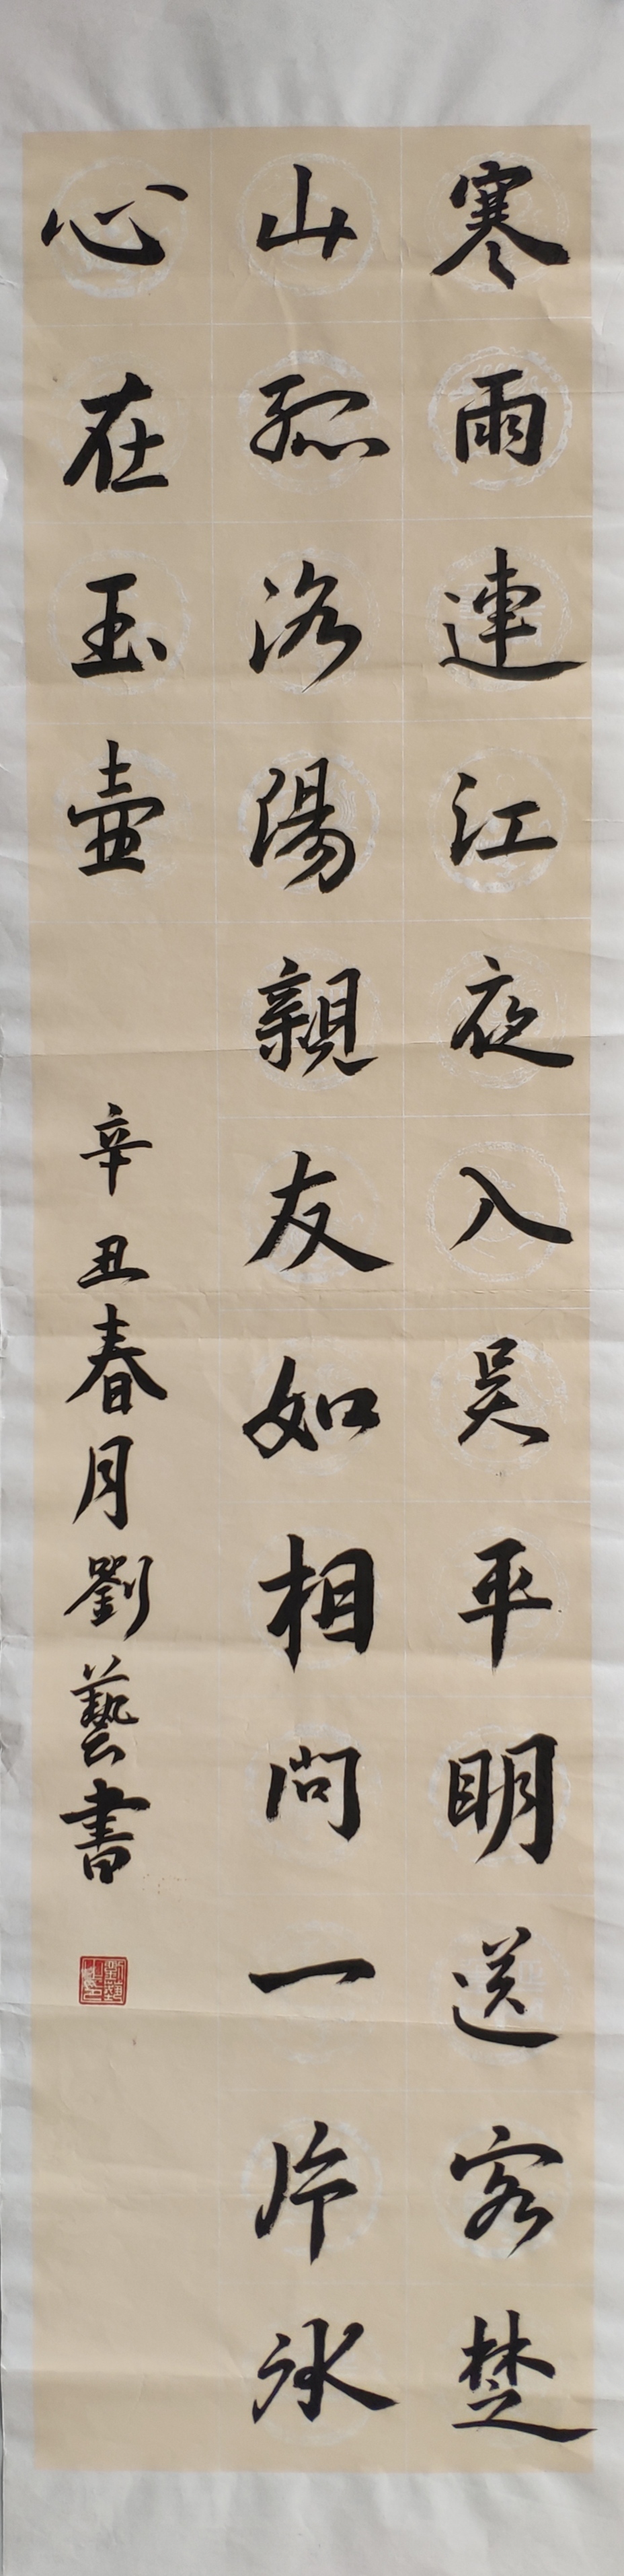 寒雨連江夜入吳平明送客楚
山孤洛陽親友如相問一片冰
心在玉壺
辛丑春月劉藝書